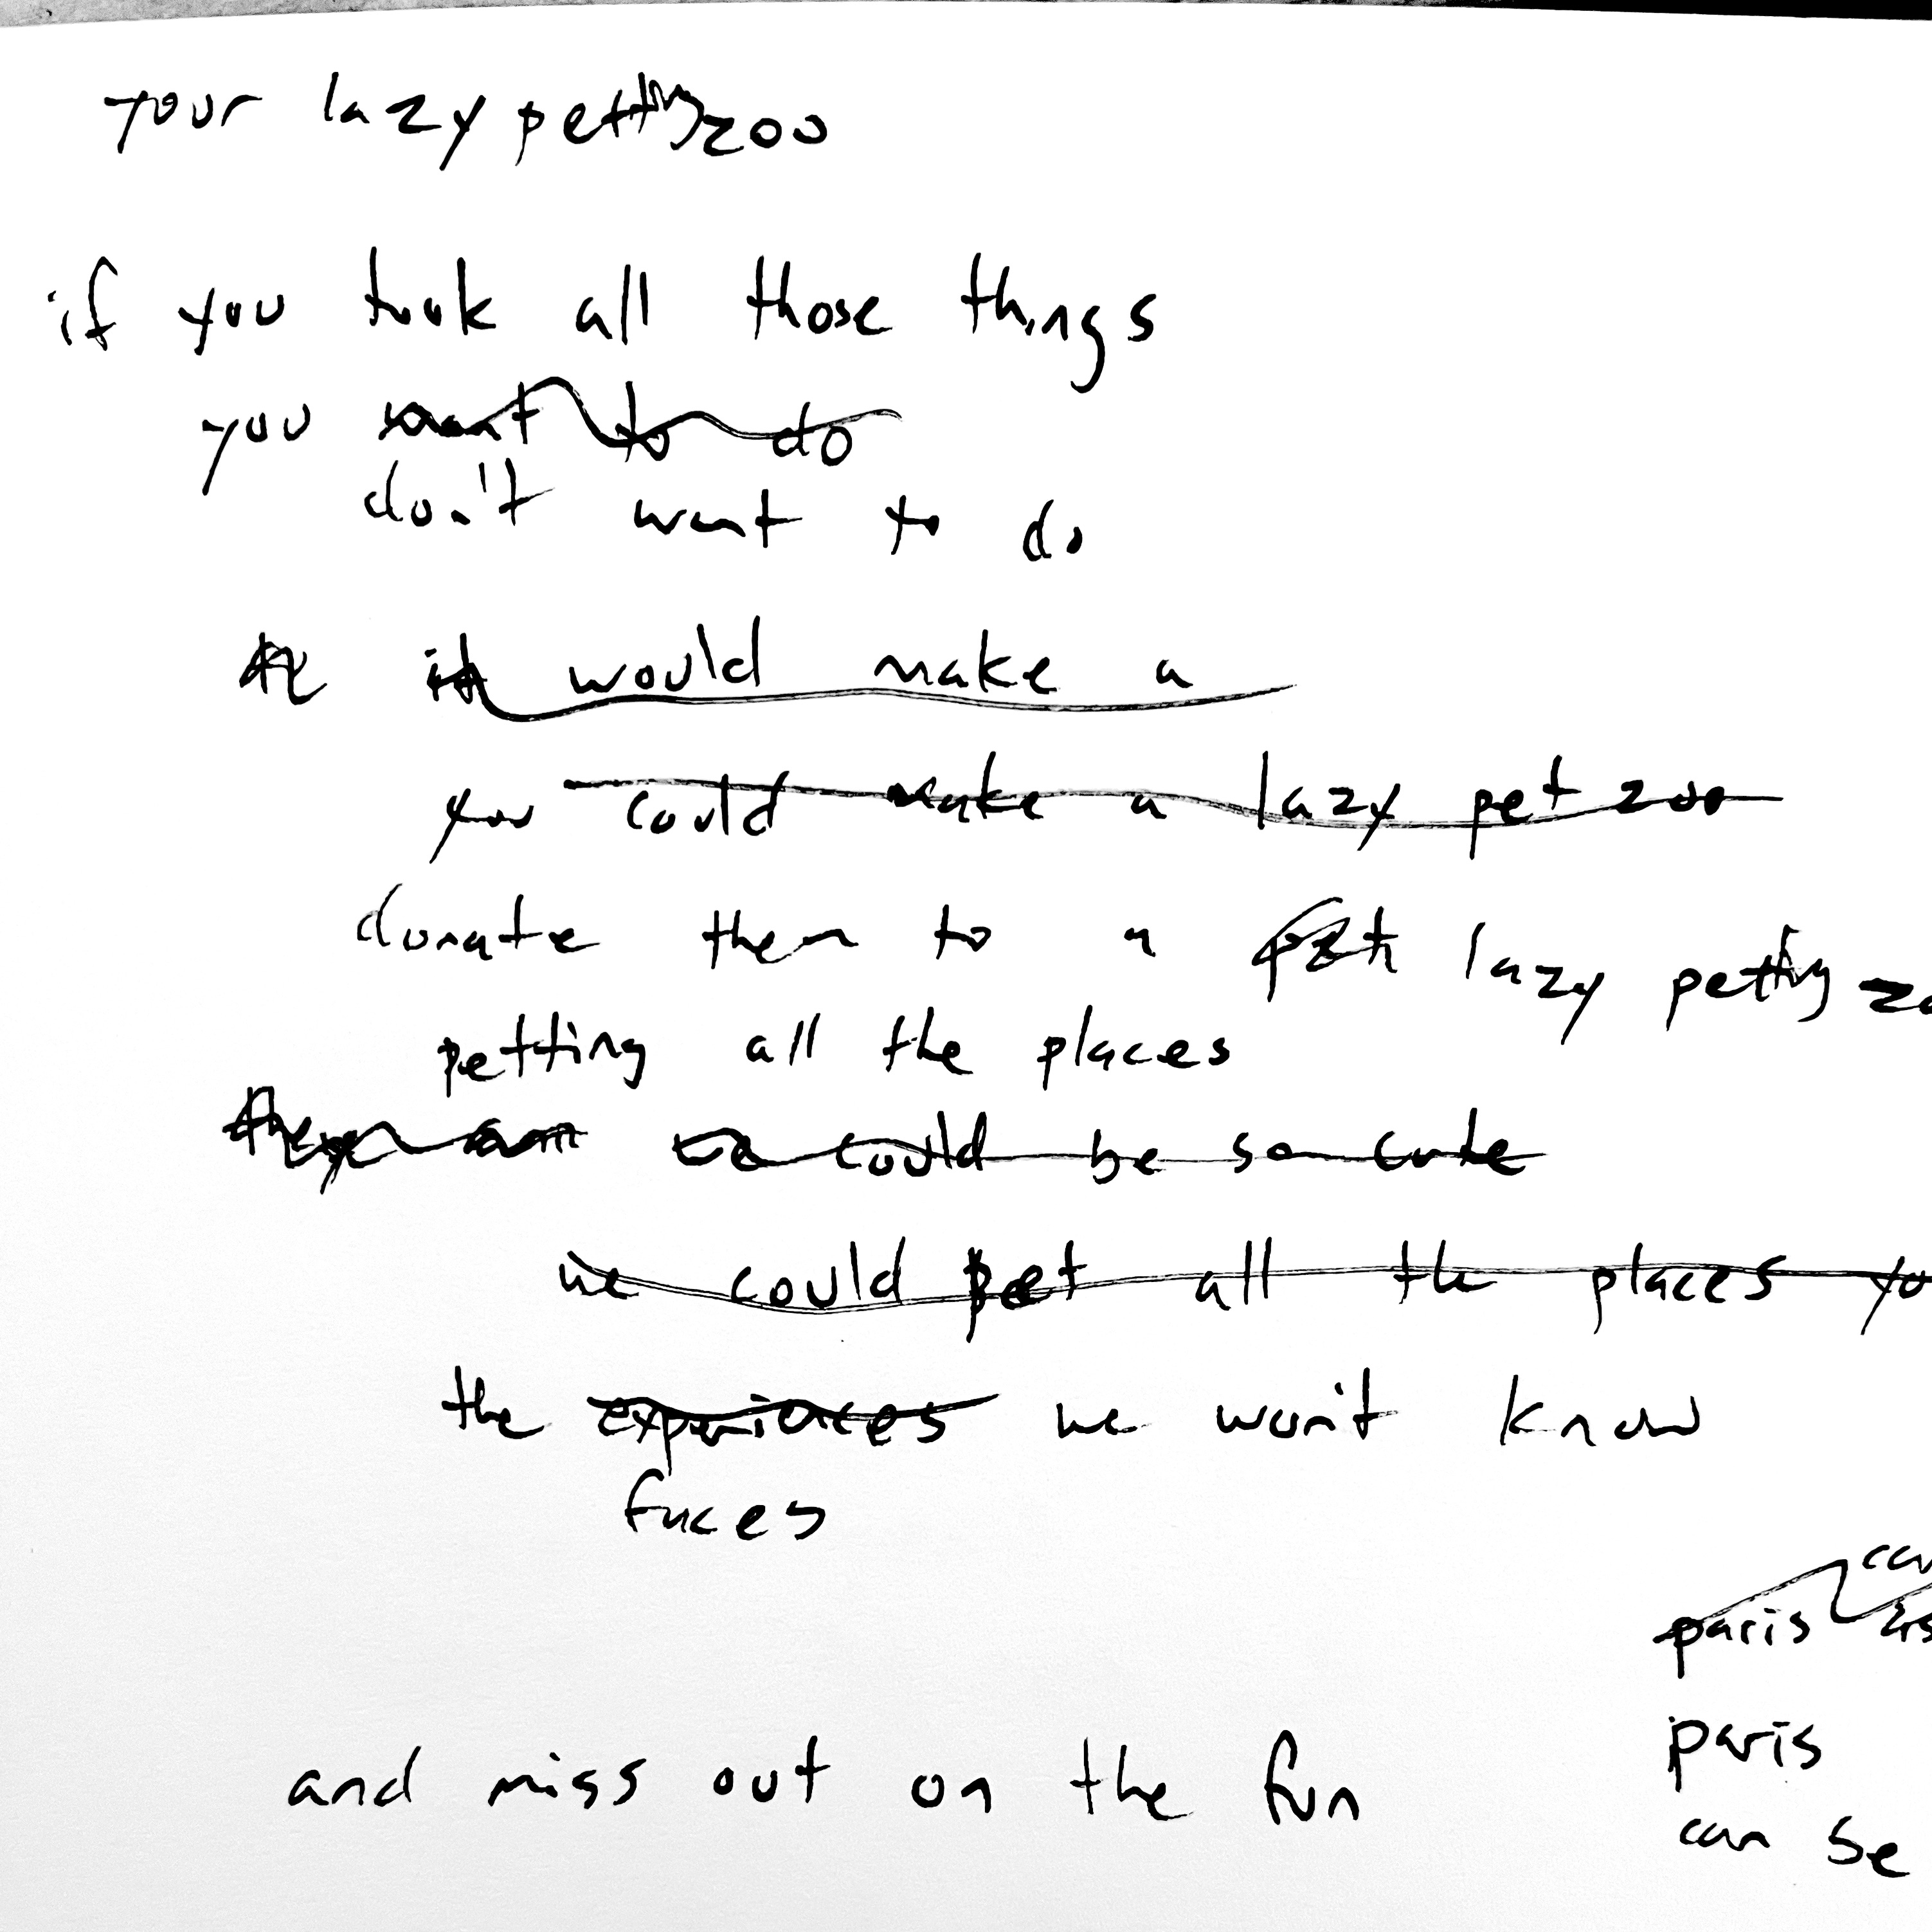 your lazy petting zoo
if you took all those things
you want to do
don't want to do
it would make a
you could make a lazy pet zoo
donate them to a pet lazy petting
petting all the places
we could be so cute
we could pet all the places
the experiences we won't know
faces
paris
paris
and miss out on the fun
can be